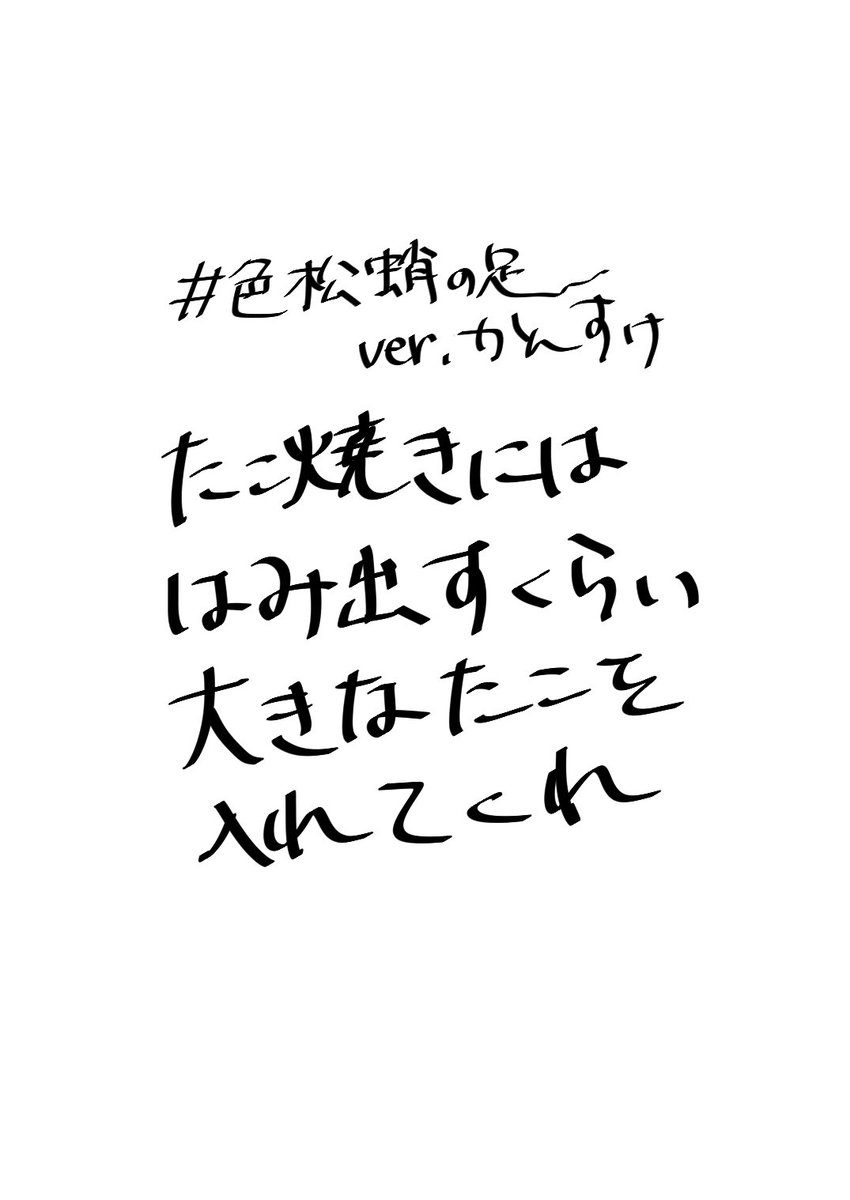 #色松蛸の足
ver.かとんすけ
たこ焼きには
はみ出すくらい
大きなたこを
入れてくれ